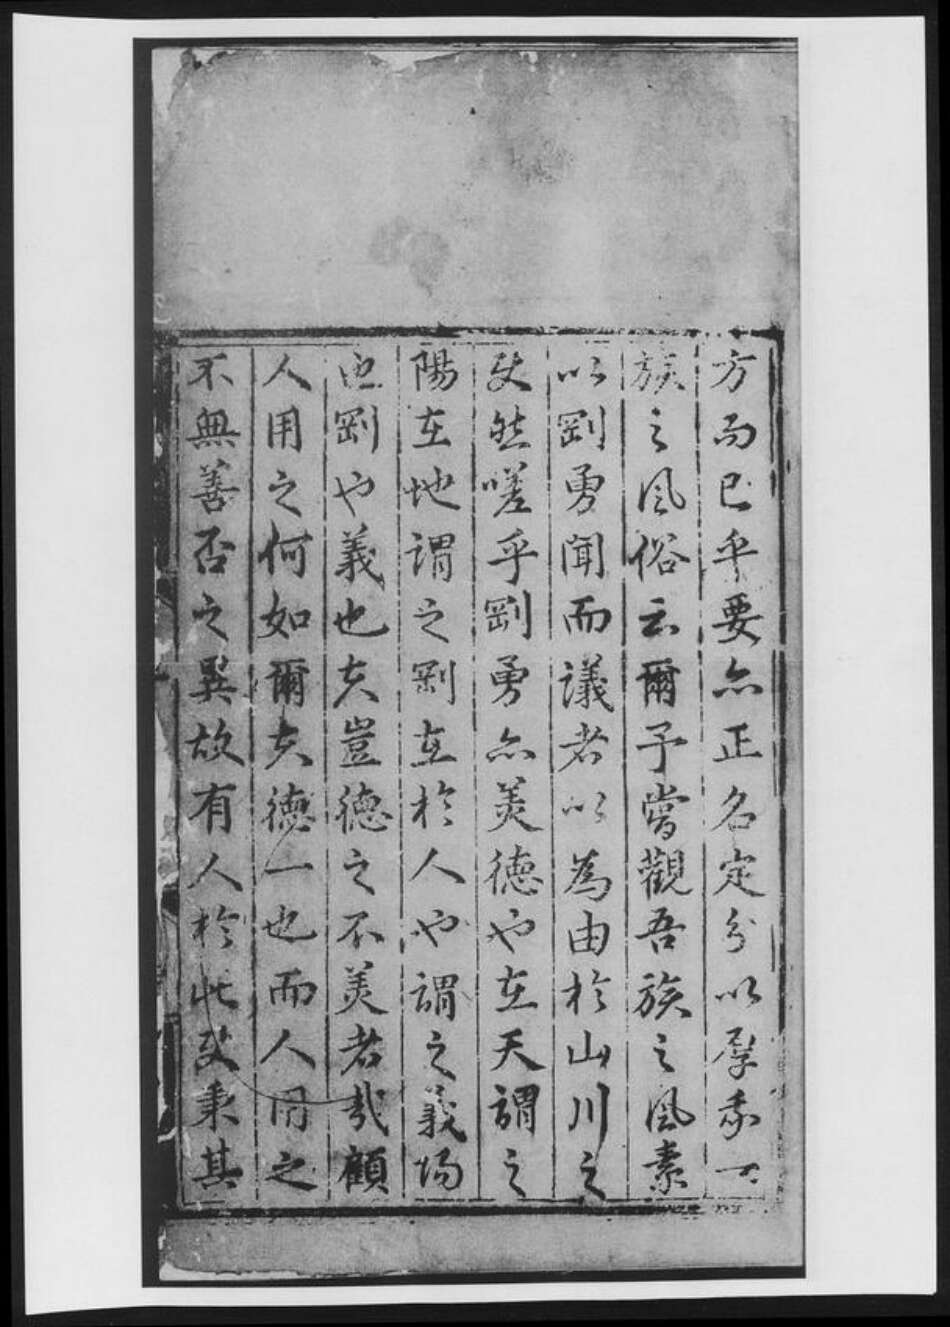 方而已乎要亦正名定分以厚我一
族之風俗云爾予嘗觀吾族之風素
以剛勇聞而議者以為由於山川之
致然嗟乎剛勇亦美德也在天謂之
陽在地謂之剛在於人也謂之義陽
也剛也義也夫豈德之不美者哉顧
人用之何如爾夫德一也而人用之
不無善否之異故有人於此致秉其